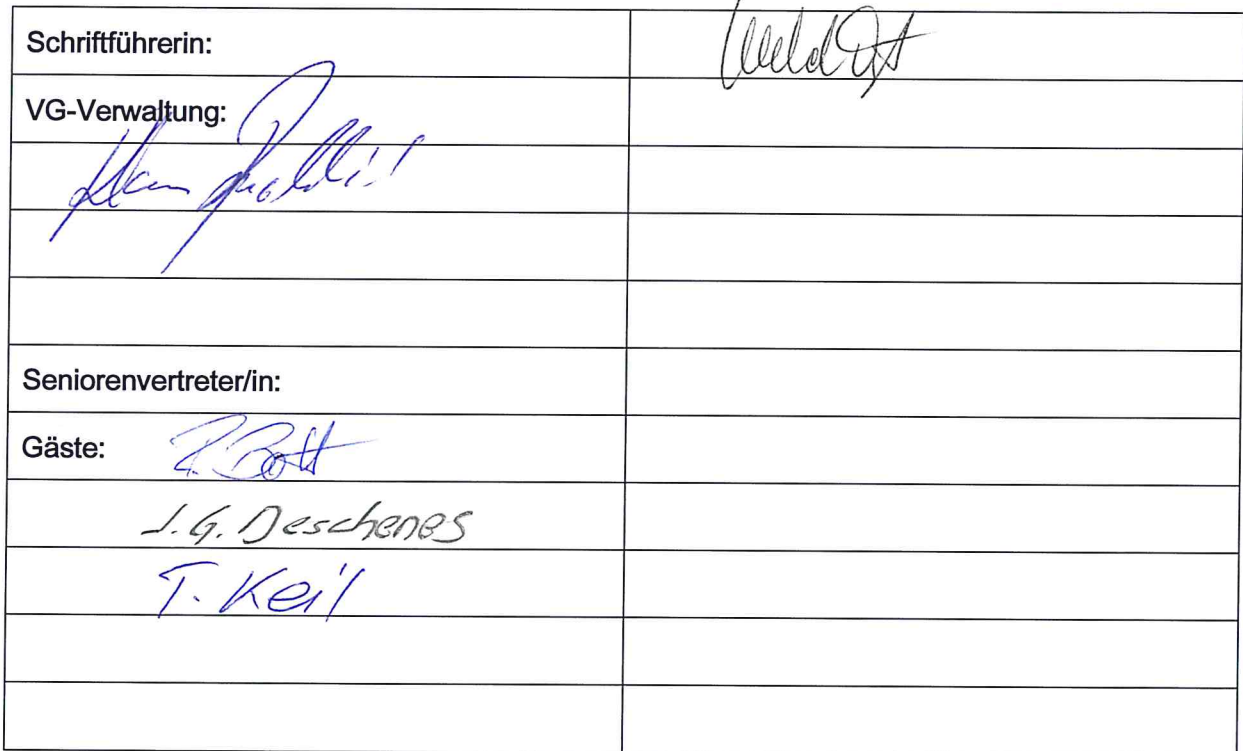 Schriftführerin:
VG-Verwaltung:
Seniorenvertreter/in:
Gäste:
J.G. Deschenes
T. Keil